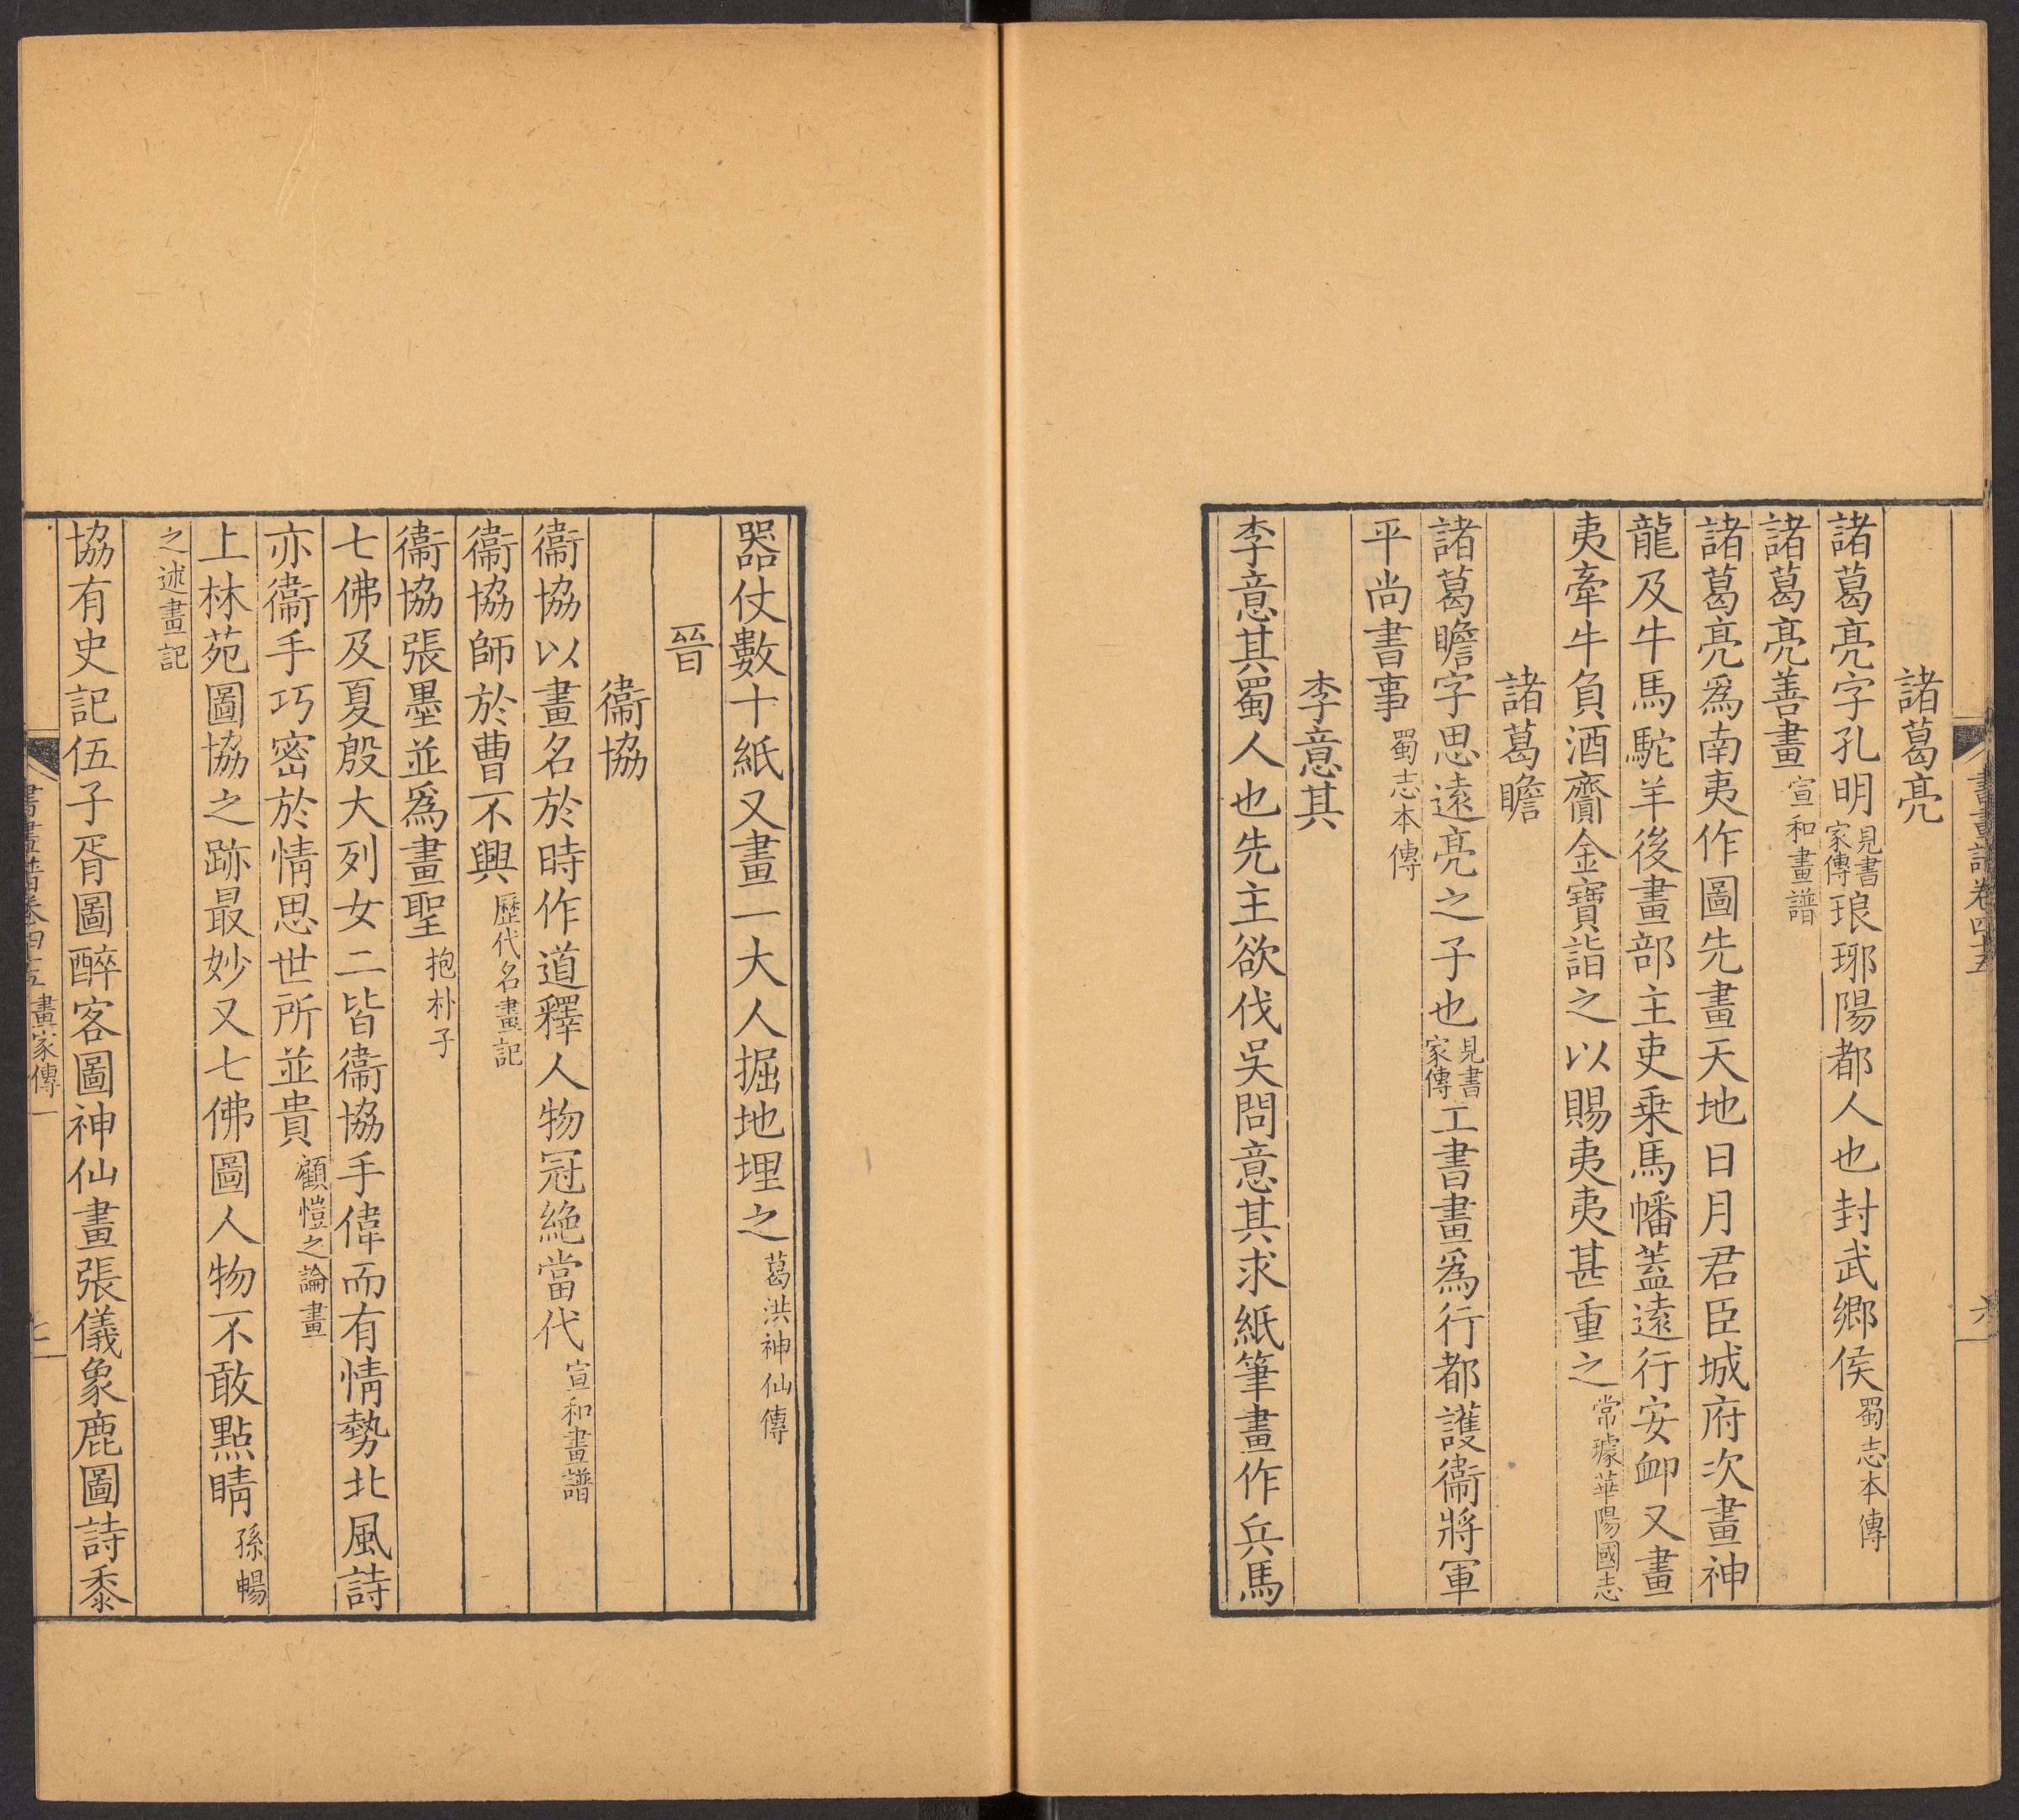 書畫譜卷四十五
六
諸葛亮
諸葛亮字孔明見書家傳琅琊陽都人也封武鄉侯蜀志本傳
諸葛亮善畫宣和畫譜
諸葛亮爲南夷作圖先畫天地日月君臣城府次畫神
龍及牛馬駝羊後畫部主吏乗馬幡蓋遠行安卹又畫
夷牽牛負酒齎金寶詣之以賜夷夷甚重之常璩華陽國志
諸葛瞻
諸葛瞻字思遠亮之子也見書家傳工書畫爲行都護衞將軍
平尚書事蜀志本傳
李意其
李意其蜀人也先主欲伐吳問意其求紙筆畫作兵馬
器仗數十紙又畫一大人掘地埋之葛洪神仙傳
晉
衞協
衞協以畫名於時作道釋人物冠絶當代宣和畫譜
衞協師於曹不興歷代名畫記
衞協張墨並爲畫聖抱朴子
七佛及夏殷大列女二皆衞協手偉而有情勢北風詩
亦衞手巧密於情思世所並貴顧愷之論畫
上林苑圖協之跡最妙又七佛圖人物不敢點睛孫暢
之述畫記
協有史記伍子胥圖醉客圖神仙畫張儀象鹿圖詩黍
書畫譜卷四十五 畫家傳一
七